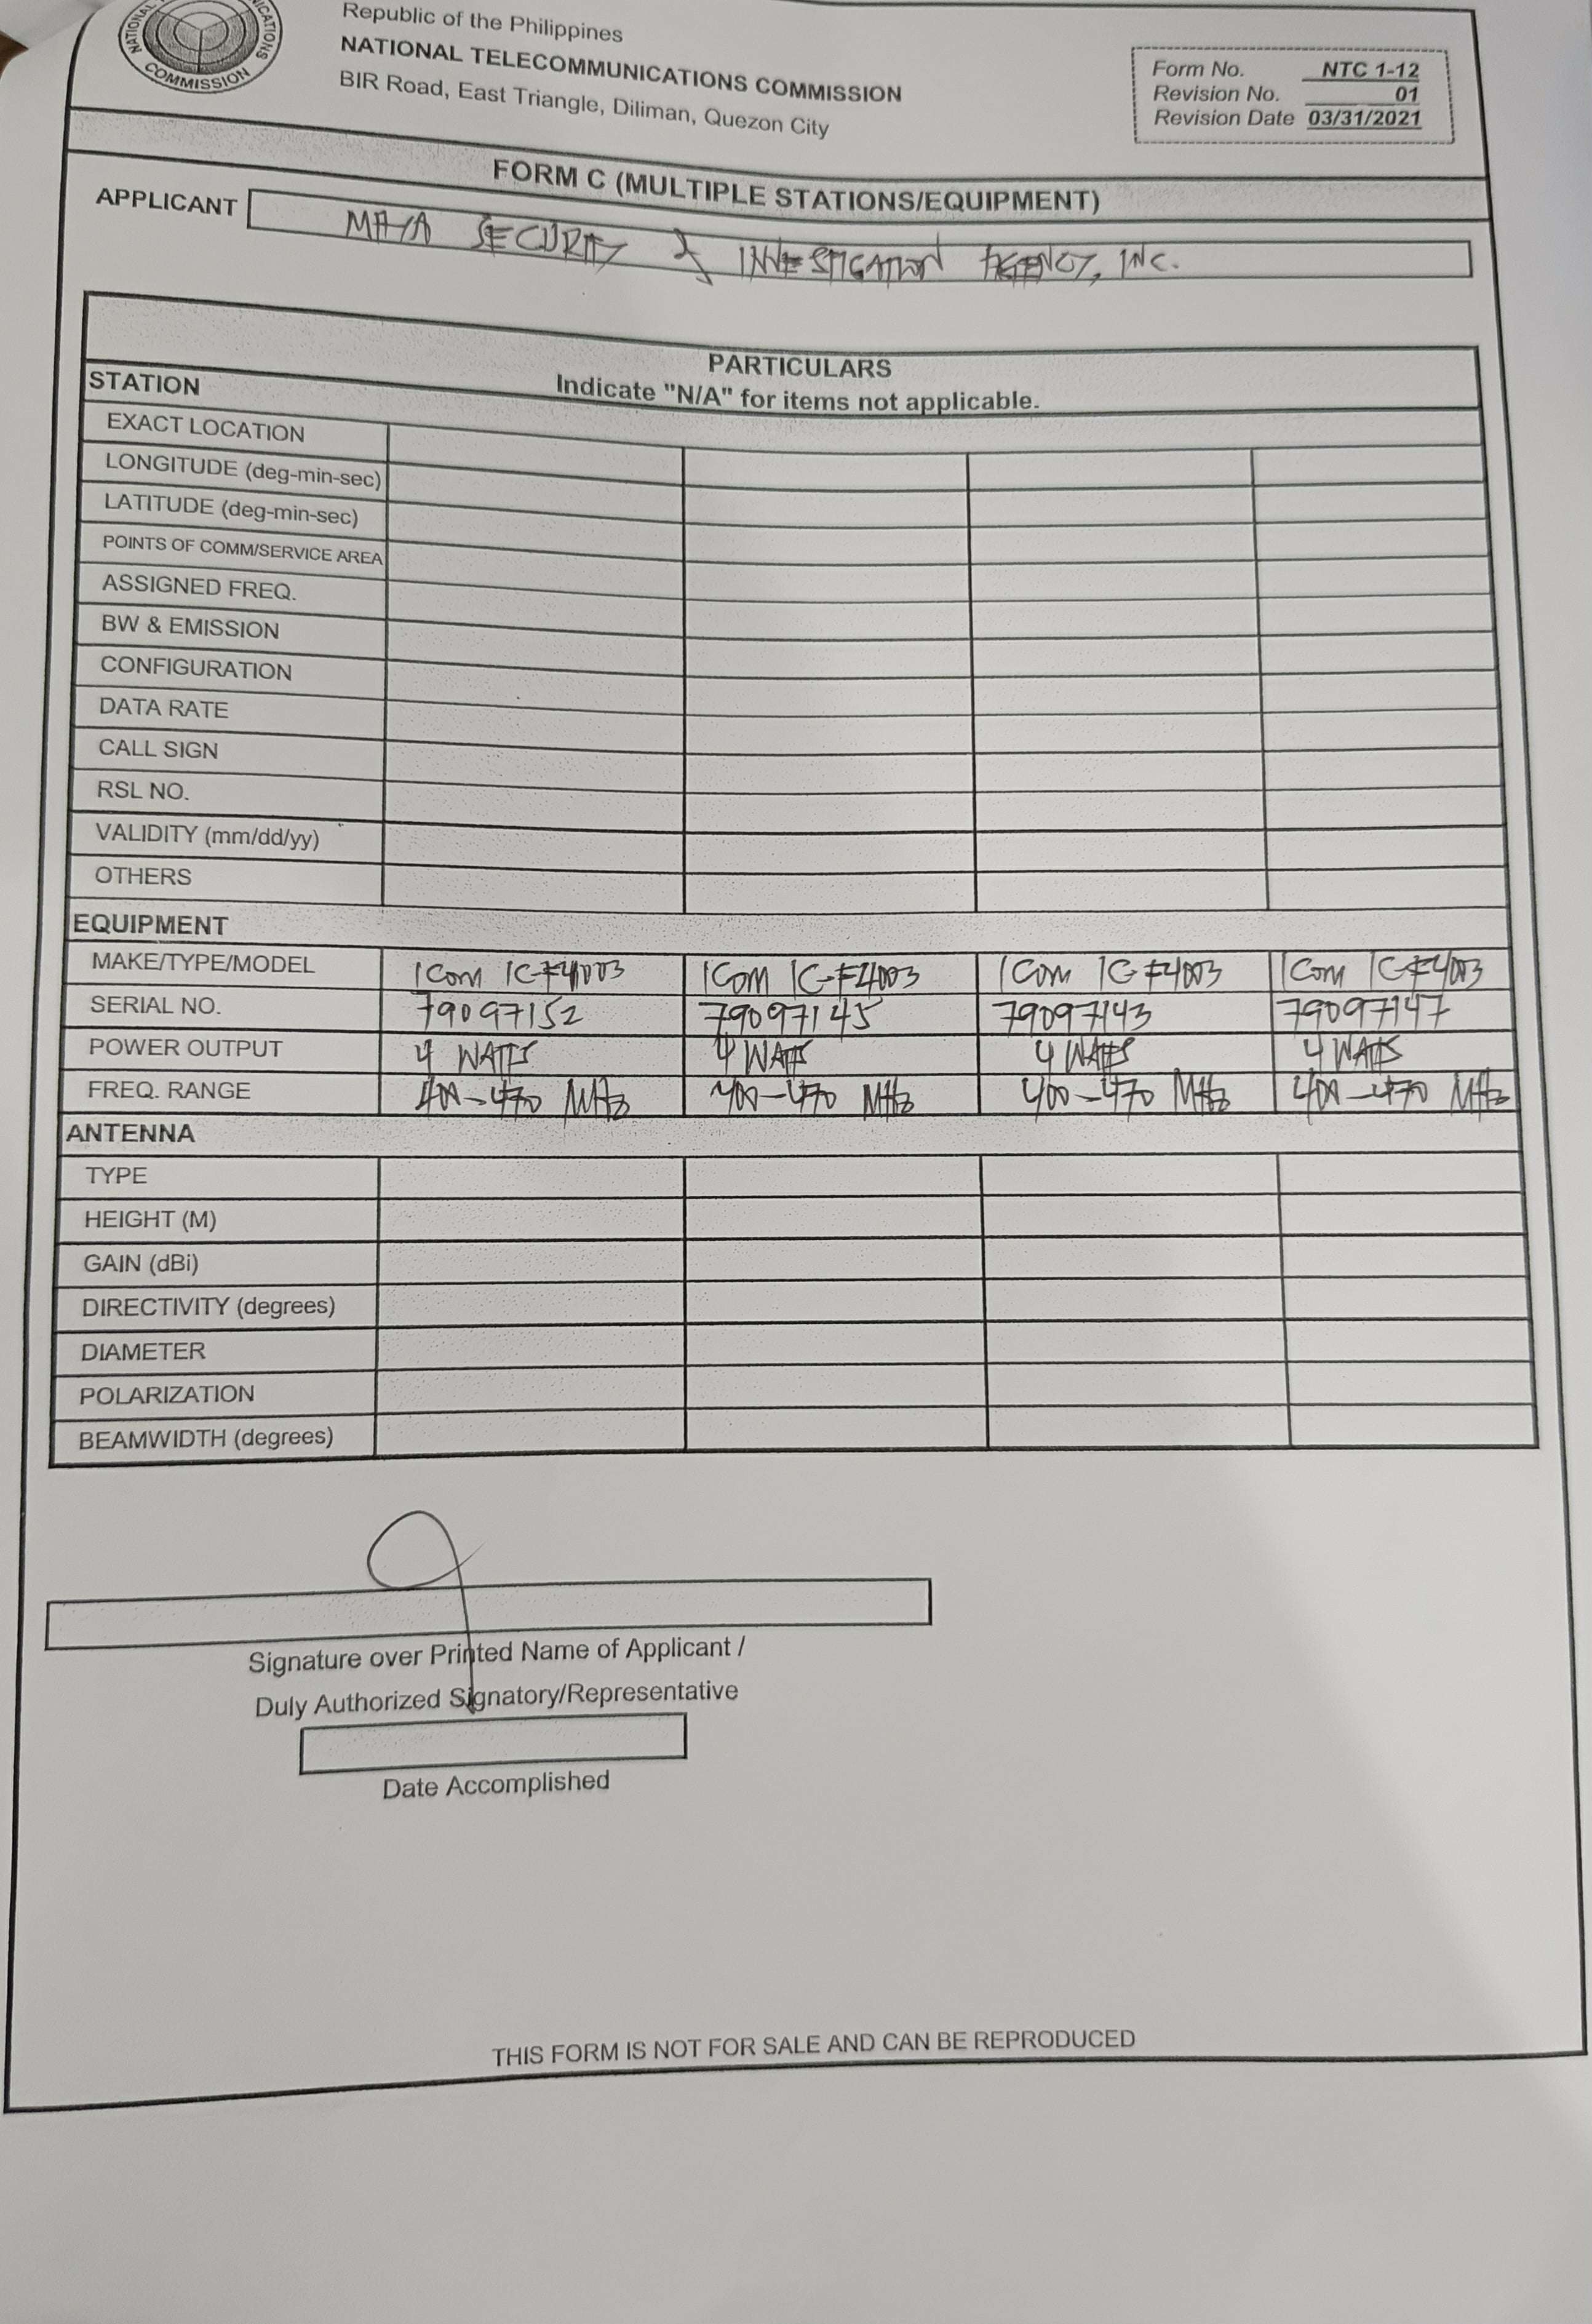 NATIONAL TELECOMMUNICATIONS COMMISSION
Republic of the Philippines
NATIONAL TELECOMMUNICATIONS COMMISSION
BIR Road, East Triangle, Diliman, Quezon City
Form No. NTC 1-12
Revision No. 01
Revision Date 03/31/2021
FORM C (MULTIPLE STATIONS/EQUIPMENT)
APPLICANT SECURITY & INVESTIGATION AGENCY, INC.
PARTICULARS
Indicate "N/A" for items not applicable.
STATION
EXACT LOCATION
LONGITUDE (deg-min-sec)
LATITUDE (deg-min-sec)
POINTS OF COMM/SERVICE AREA
ASSIGNED FREQ.
BW & EMISSION
CONFIGURATION
DATA RATE
CALL SIGN
RSL NO.
VALIDITY (mm/dd/yy)
OTHERS
EQUIPMENT
MAKE/TYPE/MODEL ICom IC-F4003 ICom IC-F4003 ICom IC-F4003 ICom IC-F4003
SERIAL NO. 79097152 79097145 79097143 79097147
POWER OUTPUT 4 WATTS 4 WATTS 4 WATTS 4 WATTS
FREQ. RANGE 400-470 MHz 400-470 MHz 400-470 MHz 400-470 MHz
ANTENNA
TYPE
HEIGHT (M)
GAIN (dBi)
DIRECTIVITY (degrees)
DIAMETER
POLARIZATION
BEAMWIDTH (degrees)
Signature over Printed Name of Applicant /
Duly Authorized Signatory/Representative
Date Accomplished
THIS FORM IS NOT FOR SALE AND CAN BE REPRODUCED